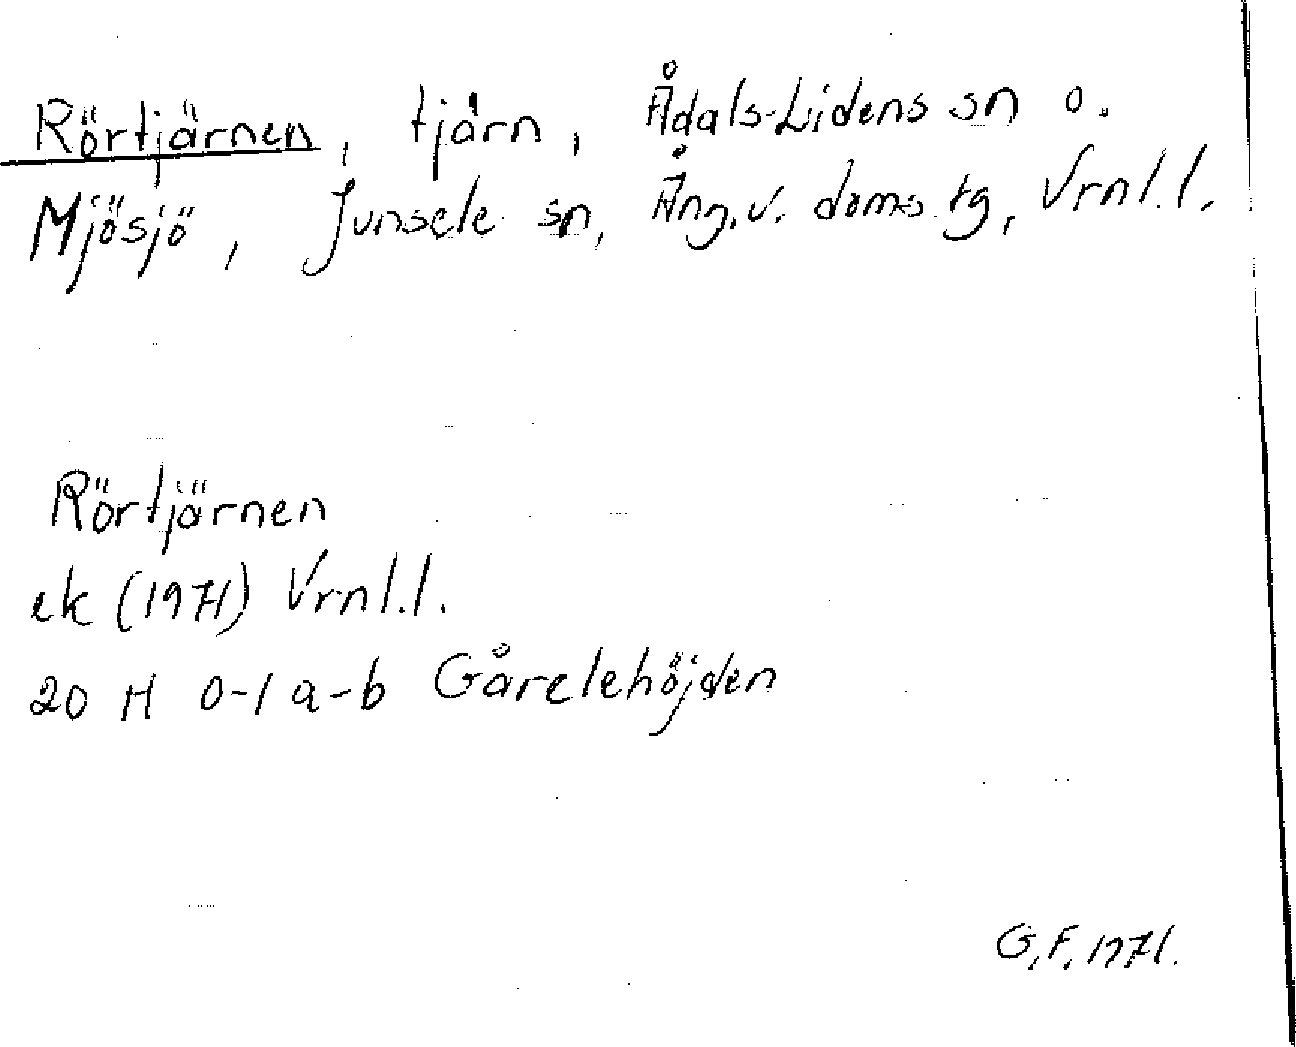 Rörtjärnen, tjärn, Ådals-Lidens sn o.
Mjösjö, Junsele sn, Ång.v. doms.tg, Vrnl.l.
Rörtjärnen
ek (1971) Vrnl.l.
20 H 0-1 a-b Gårelehöjden
G.F. 1971.